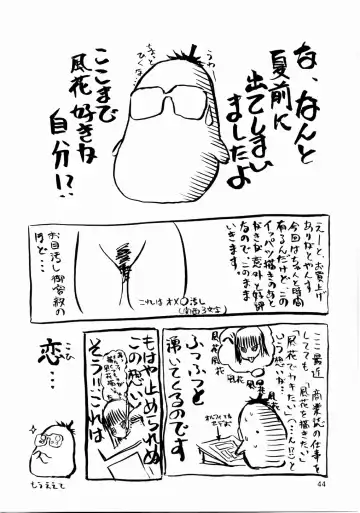 な、なんと
夏前に
出てしまい
ましたよ
ここまで
風花好きな
自分!?
えーと、お買上げ
ありがとやんす。
今回はちゃんと時間
有るんだけど、この
イッパツ描きのらく
がきが意外と好評
なので、このまま
いきます。
これはオ×〇汚し
お目汚し御容赦の
ほど…
ここ最近、商業誌の仕事を
しても、「風花を描きたい」
「風花でヤりたい」(…ん!?)と
いう想いが、
風花
風花
風花
風花
ふつふつと
沸いてくるのです
もはや止められぬ
この想い
そう!!これは
恋…
こい
もうええて
44